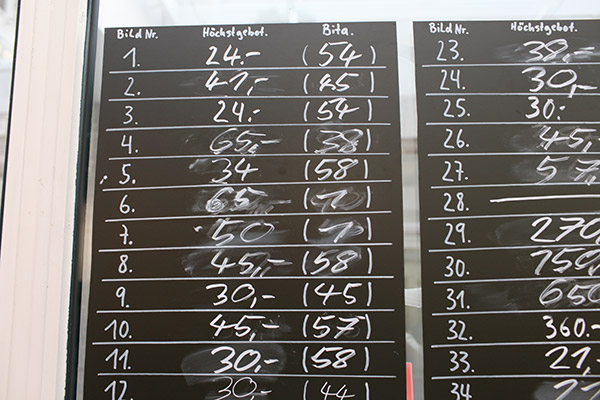 Bild Nr. Höchstgebot. Bita.
1. 24.- (54)
2. 41,- (45)
3. 24.- (54)
4. 65,- (38)
5. 34 (58)
6. 65
7. 50
8. 45,- (58)
9. 30,- (45)
10. 45,- (57)
11. 30,- (58)
12. 30,- (44)
Bild Nr. Höchstgebot.
23. 38,-
24. 30,-
25. 30.-
26. 45,-
27. 57,
28.
29. 270,
30. 750,
31. 650
32. 360.-
33. 21,-
34.